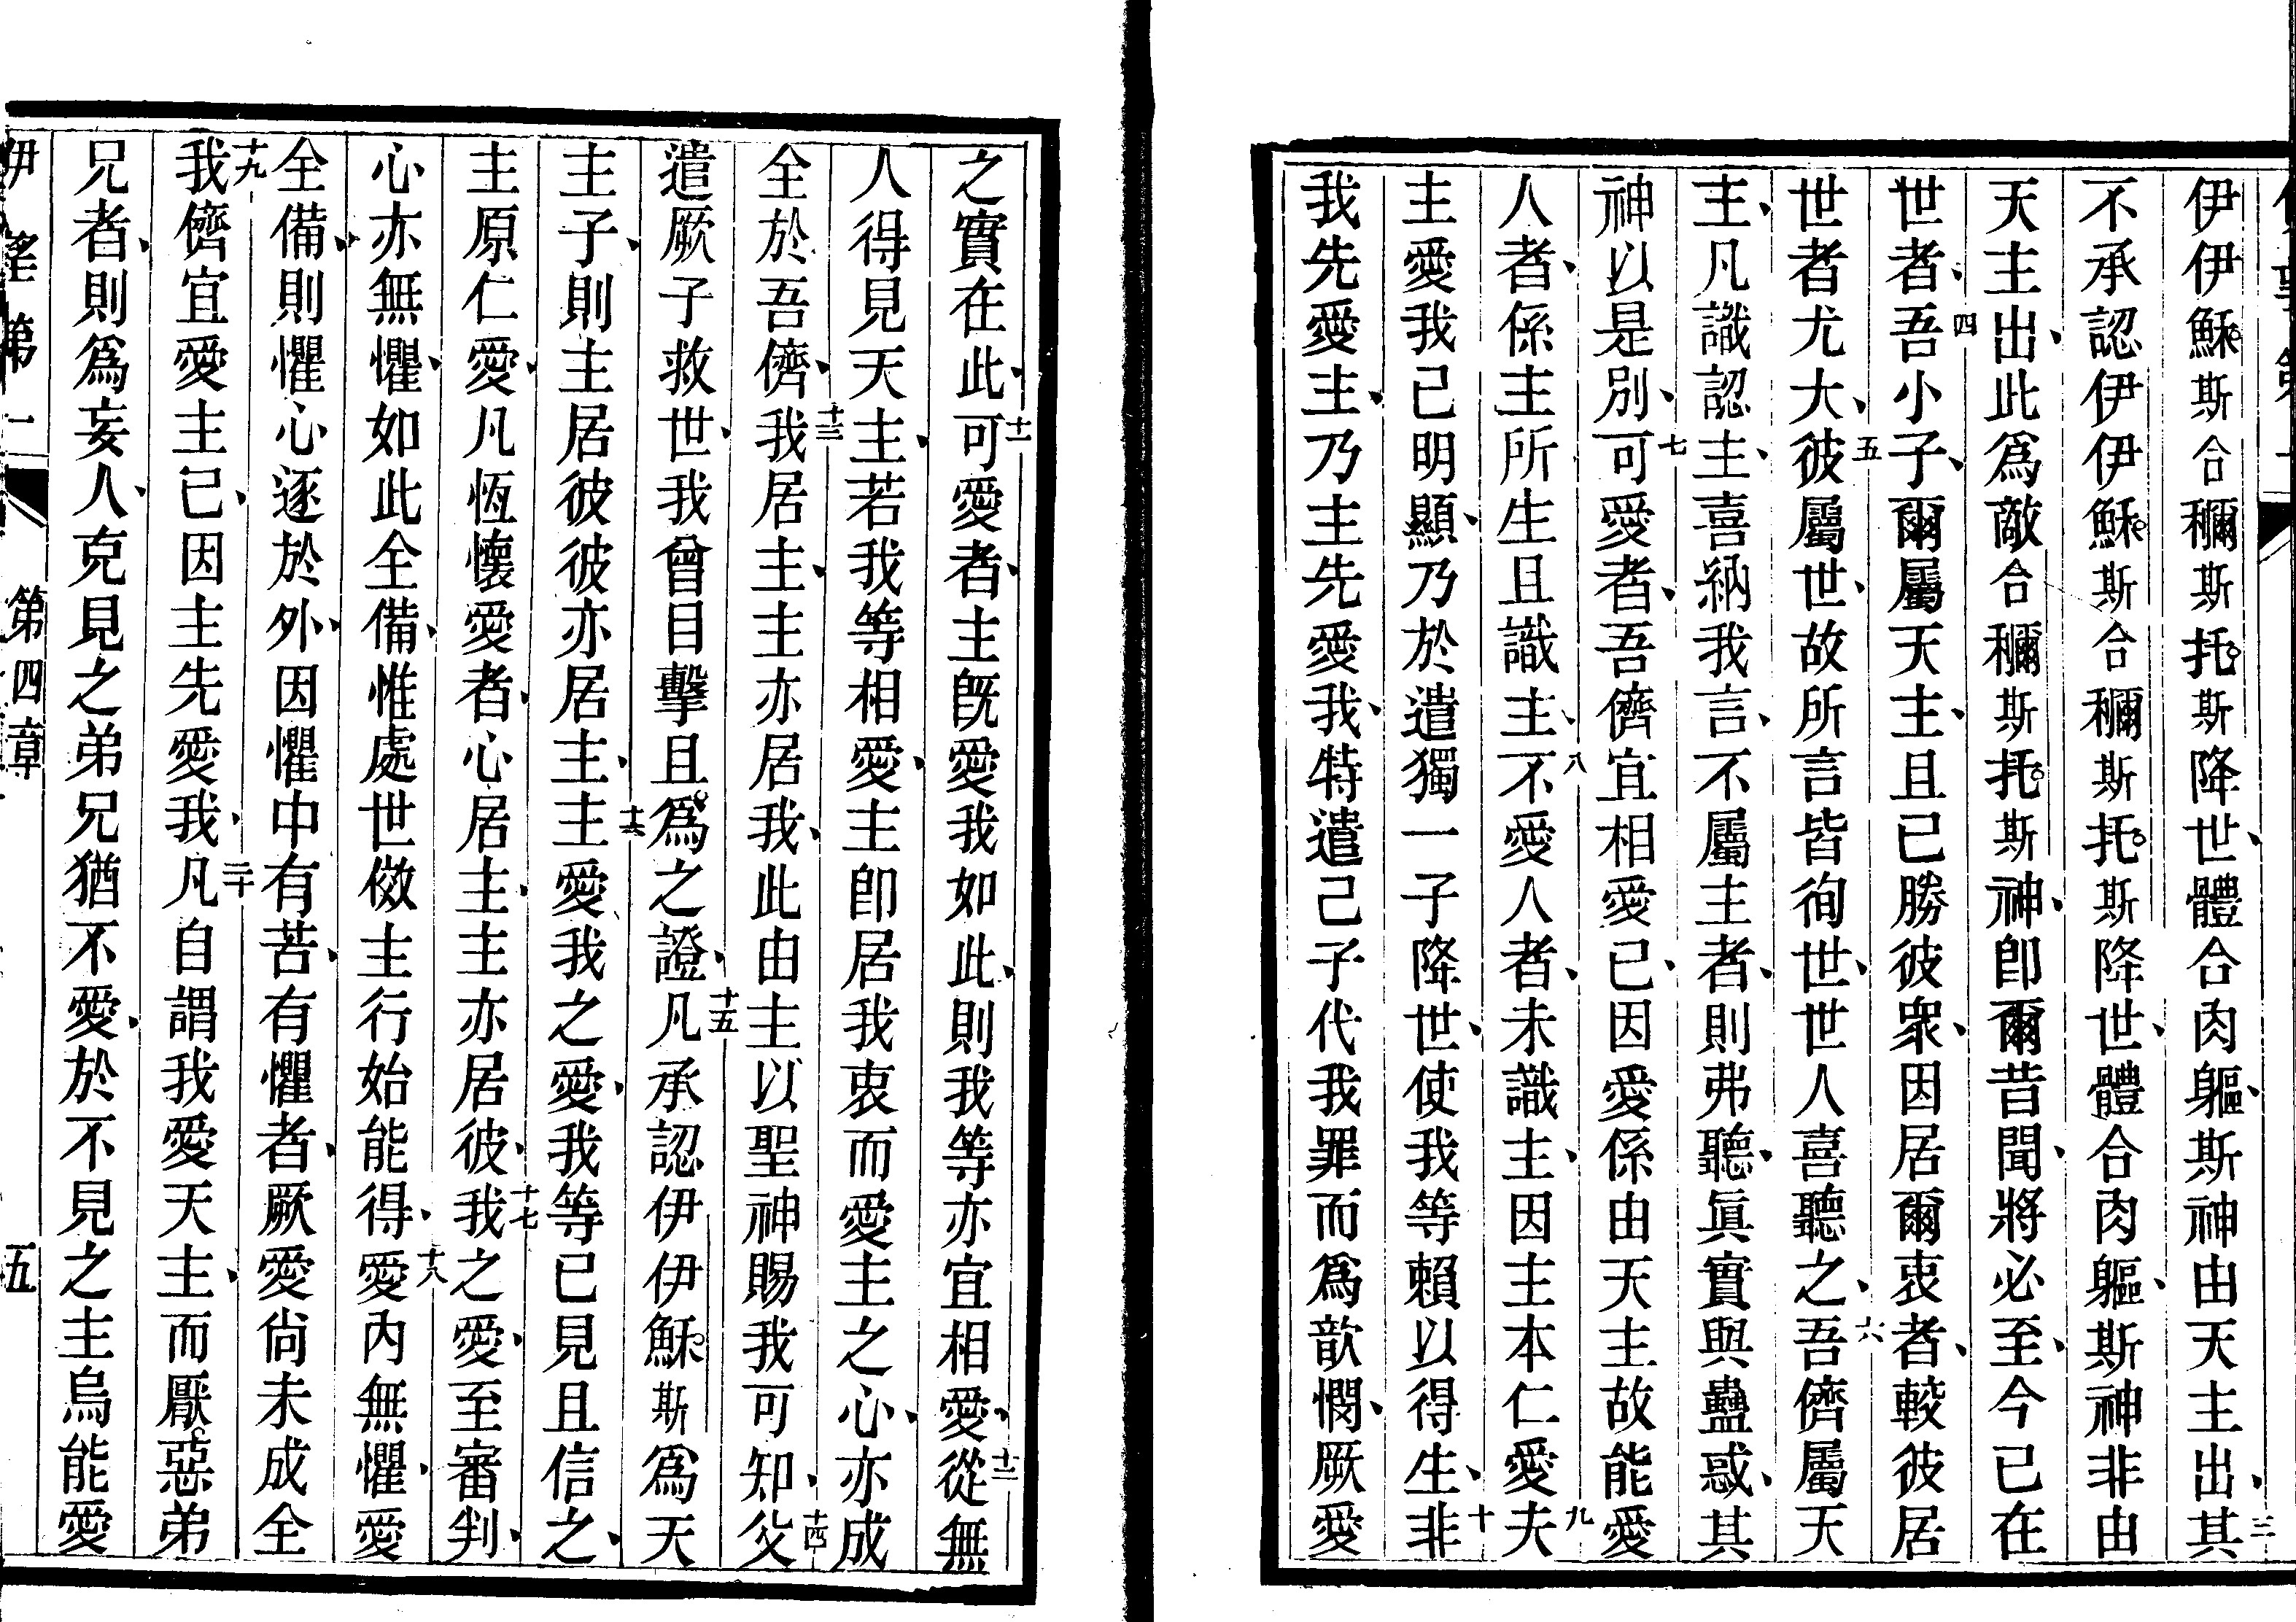 伊伊穌斯合穪斯托斯降世、體合肉軀、斯神由天主出、三其
不承認伊伊穌斯合穪斯托斯降世、體合肉軀、斯神非由
天主出、此爲敵合穪斯托斯神、卽爾昔聞、將必至、今已在
世者、四吾小子、爾屬天主、且已勝彼衆、因居爾衷者、較彼居
世者尤大、五彼屬世、故所言皆徇世、世人喜聽之、六吾儕屬天
主、凡識認主、喜納我言、不屬主者、則弗聽、眞實與蠱惑、其
神以是別、七可愛者、吾儕宜相愛已、因愛係由天主、故能愛
人者、係主所生且識主、八不愛人者、未識主、因主本仁愛、九夫
主愛我已明顯、乃於遣獨一子降世、使我等賴以得生、十非
我先愛主、乃主先愛我、特遣己子代我罪而爲歆憫、厥愛
之實在此、十一可愛者、主旣愛我如此、則我等亦宜相愛、十二從無
人得見天主、若我等相愛、主卽居我衷而愛主之心、亦成
全於吾儕、十三我居主、主亦居我、此由主以聖神賜我可知、十四父
遣厥子救世、我曾目擊且爲之證、十五凡承認伊伊穌斯爲天
主子、則主居彼彼亦居主、十六主愛我之愛、我等已見且信之、
主原仁愛、凡恆懷愛者、心居主、主亦居彼、十七我之愛、至審判、
心亦無懼、如此全備、惟處世倣主行始能得、十八愛內無懼、愛
全備、則懼心逐於外、因懼中有苦、有懼者、厥愛尙未成全
十九我儕宜愛主已、因主先愛我、二十凡自謂我愛天主、而厭惡弟
兄者、則爲妄人、克見之弟兄猶不愛、於不見之主烏能愛
第四章
五